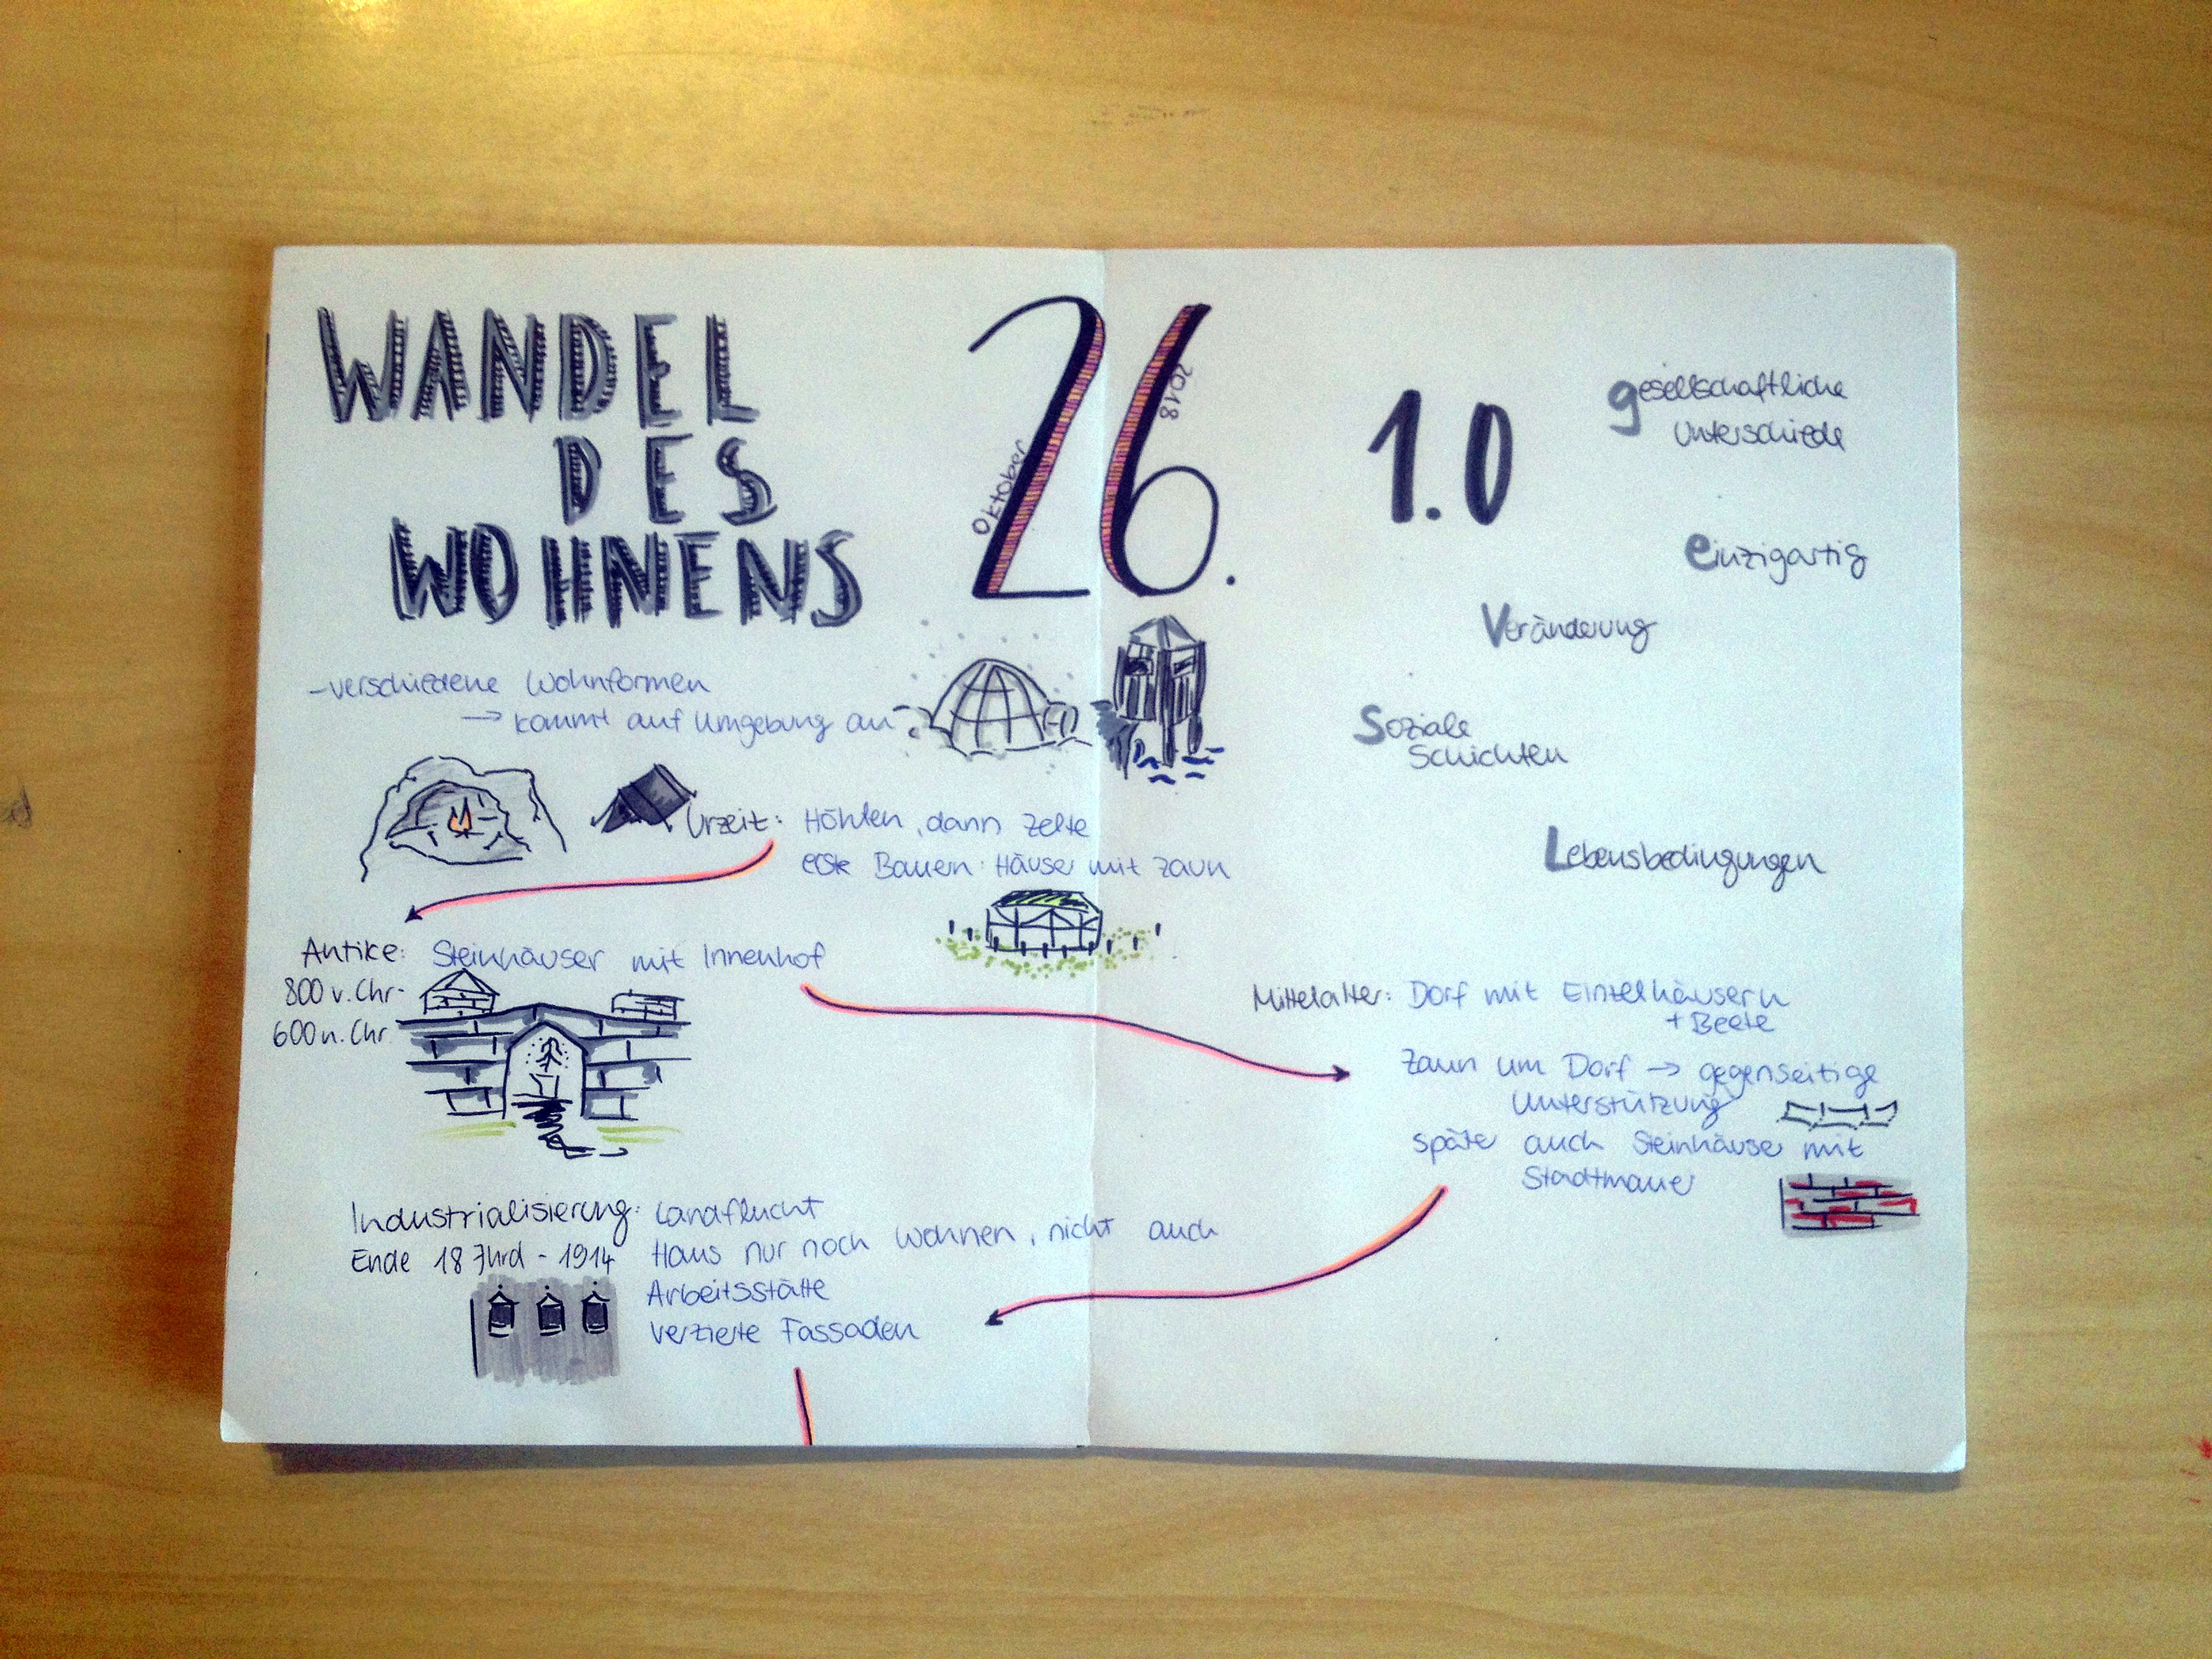 WANDEL
DES
WOHNENS
26.
Oktober
2018
1.0
gesellschaftliche
Unterschiede
einzigartig
Veränderung
Soziale
Schichten
Lebensbedingungen
- verschiedene Wohnformen
→ kommt auf Umgebung an
Urzeit: Höhlen, dann Zelte
erste Bauern: Häuser mit Zaun
Antike: Steinhäuser mit Innenhof
800 v. Chr-
600 n. Chr
Mittelalter: Dorf mit Einzelhäusern
+ Beete
Zaun um Dorf → gegenseitige
Unterstützung
später auch Steinhäuser mit
Stadtmauer
Industrialisierung: Landflucht
Ende 18 Jhrd - 1914 Haus nur noch wohnen, nicht auch
Arbeitsstätte
verzierte Fassaden